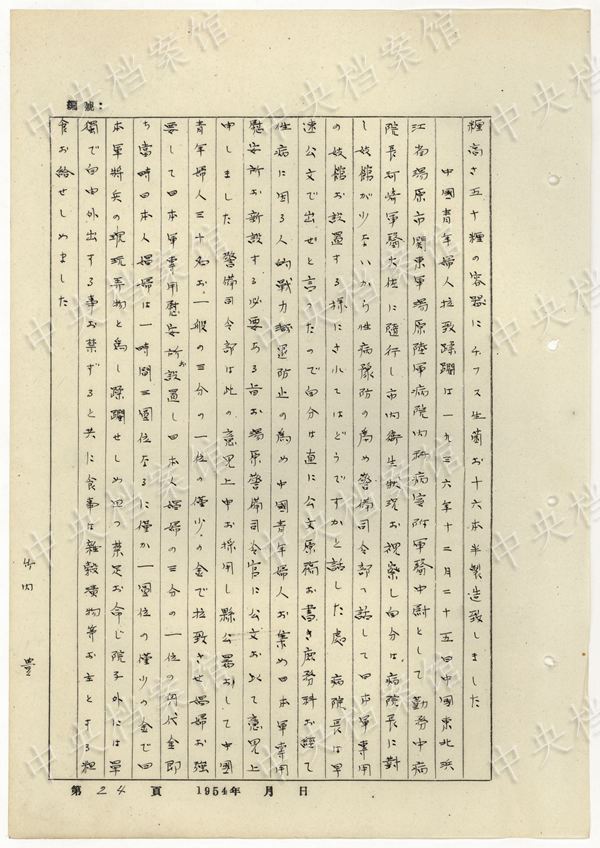 編號：
糎高さ五十糎の容器にチフス生菌お十六本半製造致しました
中國青年婦人拉致蹂躙は一九三六年十二月二十五日中國東北浜
江省場原市関東軍場原陸軍病院内科病室附軍医中尉として勤務中病
院長河崎軍醫大佐に隨行し市内衛生状況お視察し自分は病院長に對
し妓館が少ないから性病豫防の為め警備司令部へ話して日本軍専用
の妓館お設置する様にされてはどうですかと話した處 病院長は早
速公文で出せと言ったので自分は直に公文原稿お書き庶務科お経て
性病に因る人的戦力減退防止の為め中國青年婦人お集め日本軍専用
慰安所お新設する必要ある旨お場原警備司令官に公文お以て意見上
申しました 警備司令部は此の意見上申お採用し縣公署おして中國
青年婦人三十名お一般の三分の一位の僅少の金で拉致させ娼婦お強
要して日本軍専用慰安所お設置し日本人娼婦の三分の一位の花代金即
ち當時日本人娼婦は一時間三圓位なるに僅か一圓位の僅少の金で日
本軍将兵の玩弄物と為し蹂躙せしめ且つ禁足お命じ院子外には單
獨で自由外出する事お禁ずると共に食事は雑穀漬物等お主とする粗
食お給せしめました
竹内 豊
第 24 頁 1954年 月 日
中央档案馆